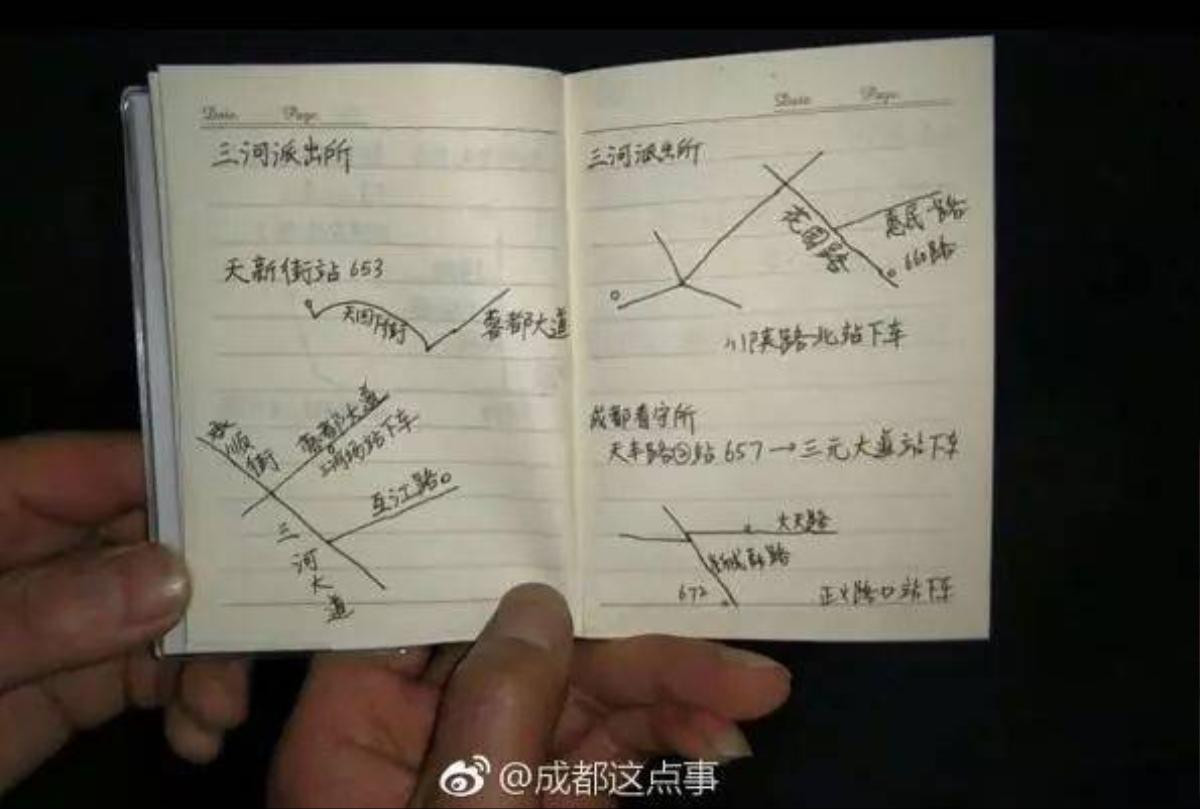 Date. Page.
三河派出所
天新街站 653
天回下街
蓉都大道
永顺街
蓉都大道
三河场站下车
互江路
三河大道
Date. Page.
三河派出所
花园路
惠民路
660路
川陕路北站下车
成都看守所
天丰路②站 657→三元大道站下车
大天路
672
正义路口站下车
@成都这点事